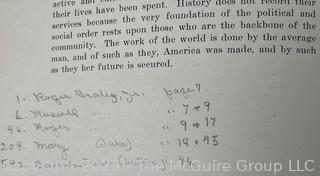 active and
their lives have been spent. History does not record their
services because the very foundation of the political and
social order rests upon those who are the backbone of the
community. The work of the world is done by the average
man, and of such as they, America was made, and by such
as they her future is secured.
1. Roger Braley, Jr. page 7.
6. Russell " " 7 & 9
46. Roger " " 9 & 17
209. Mary " 18 & 45
© 2023 The McGuire Group LLC